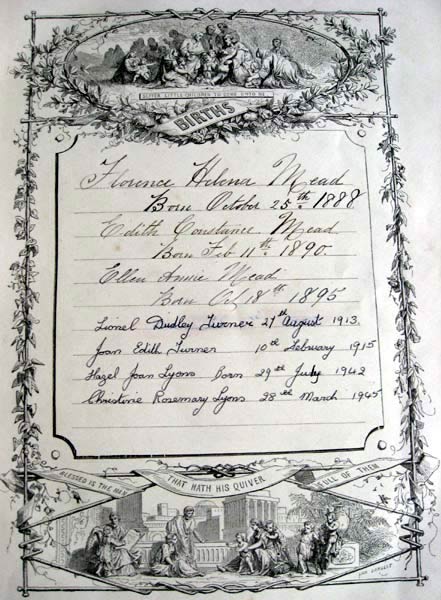 SUFFER LITTLE CHILDREN TO COME UNTO ME
BIRTHS
Florence Helena Mead
Born October 25th 1888
Edith Constance Mead
Born Feb 11th 1890.
Ellen Annie Mead
Born Oct 18th 1895
Lionel Dudley Turner 27th August 1913.
Joan Edith Turner 10th February 1915
Hazel Joan Lyons Born 29th July 1942
Christine Rosemary Lyons 28th March 1945
BLESSED IS THE MAN
THAT HATH HIS QUIVER
FULL OF THEM